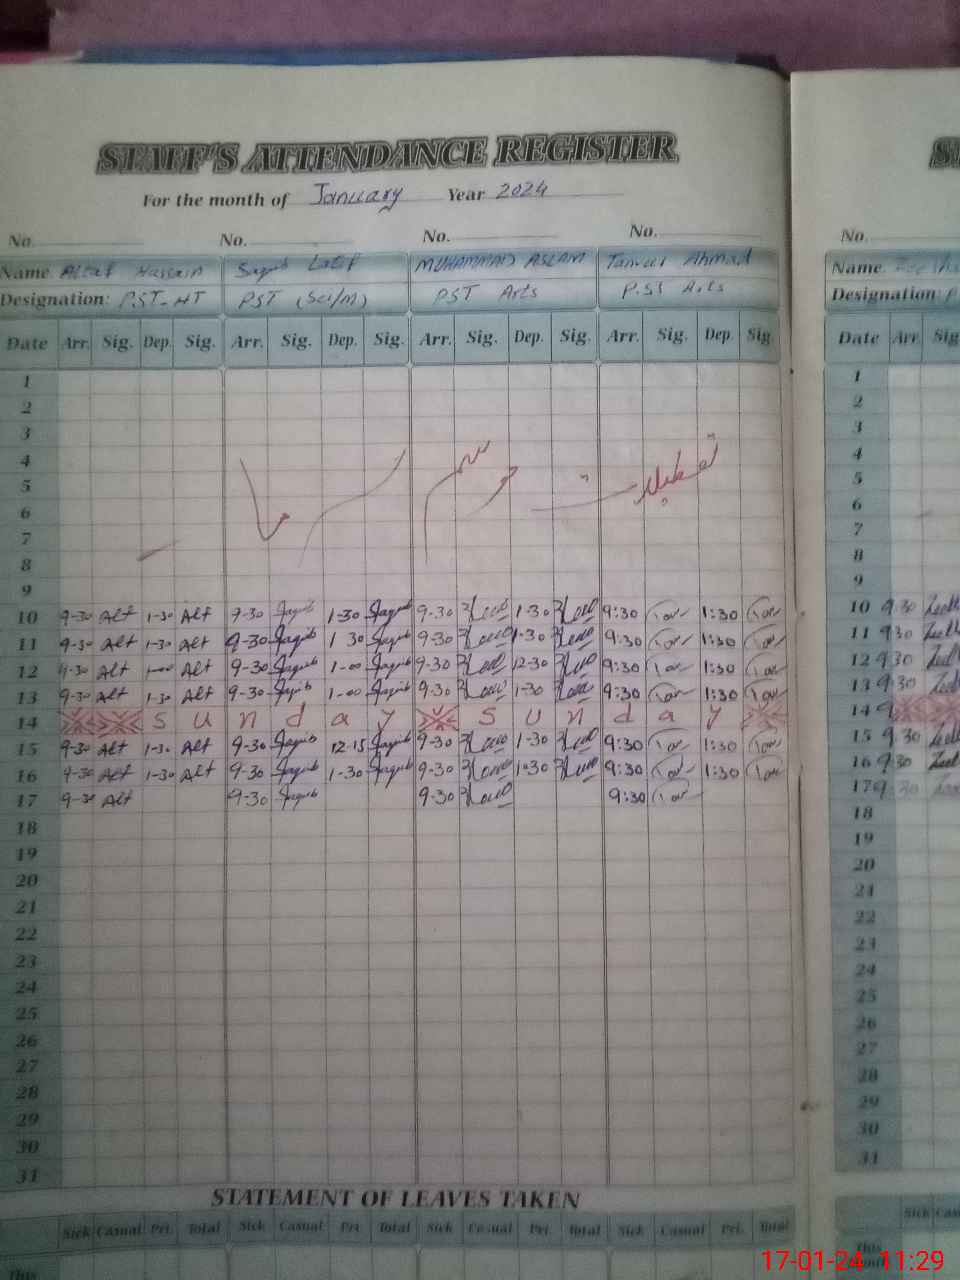 STAFF'S ATTENDANCE REGISTER
For the month of January Year 2024
No. No. No. No. No.
Name Altaf Hussain Saqib Latif MUHAMMAD ASLAM Tanveer Ahmad Name
Designation: PST-HT PST (Sci/M) PST Arts P.ST Arts Designation: P
Date Arr. Sig. Dep. Sig. Arr. Sig. Dep. Sig. Arr. Sig. Dep. Sig. Arr. Sig. Dep. Sig. Date Arr. Sig
1 1
2 2
3 3
4 4
5 5
6 6
7 7
8 8
9 9
10 9-30 Alt 1-30 Alt 9-30 Saqib 1-30 Saqib 9-30 1-30 9:30 1:30 10 9:30
11 9-30 Alt 1-30 Alt 9-30 Saqib 1 30 Saqib 9-30 1-30 9:30 1:30 11 9:30
12 9-30 Alt 1-00 Alt 9-30 Saqib 1-00 Saqib 9-30 12-30 9:30 1:30 12 9:30
13 9-30 Alt 1-30 Alt 9-30 Saqib 1-00 Saqib 9-30 1-30 9:30 1:30 13 9:30
14 Sunday Sunday 14
15 9-30 Alt 1-30 Alt 9-30 Saqib 12-15 Saqib 9-30 1-30 9:30 1:30 15 9:30
16 9-30 Alt 1-30 Alt 9-30 Saqib 1-30 Saqib 9-30 1:30 9:30 1:30 16 9:30
17 9-30 Alt 9-30 Saqib 9-30 9:30 17 9:30
18 18
19 19
20 20
21 21
22 22
23 23
24 24
25 25
26 26
27 27
28 28
29 29
30 30
31 31
STATEMENT OF LEAVES TAKEN
Sick Casual Pri. Total Sick Casual Pri. Total Sick Casual Pri. Total Sick Casual Pri. Total Sick Cas
This This
17-01-24 11:29